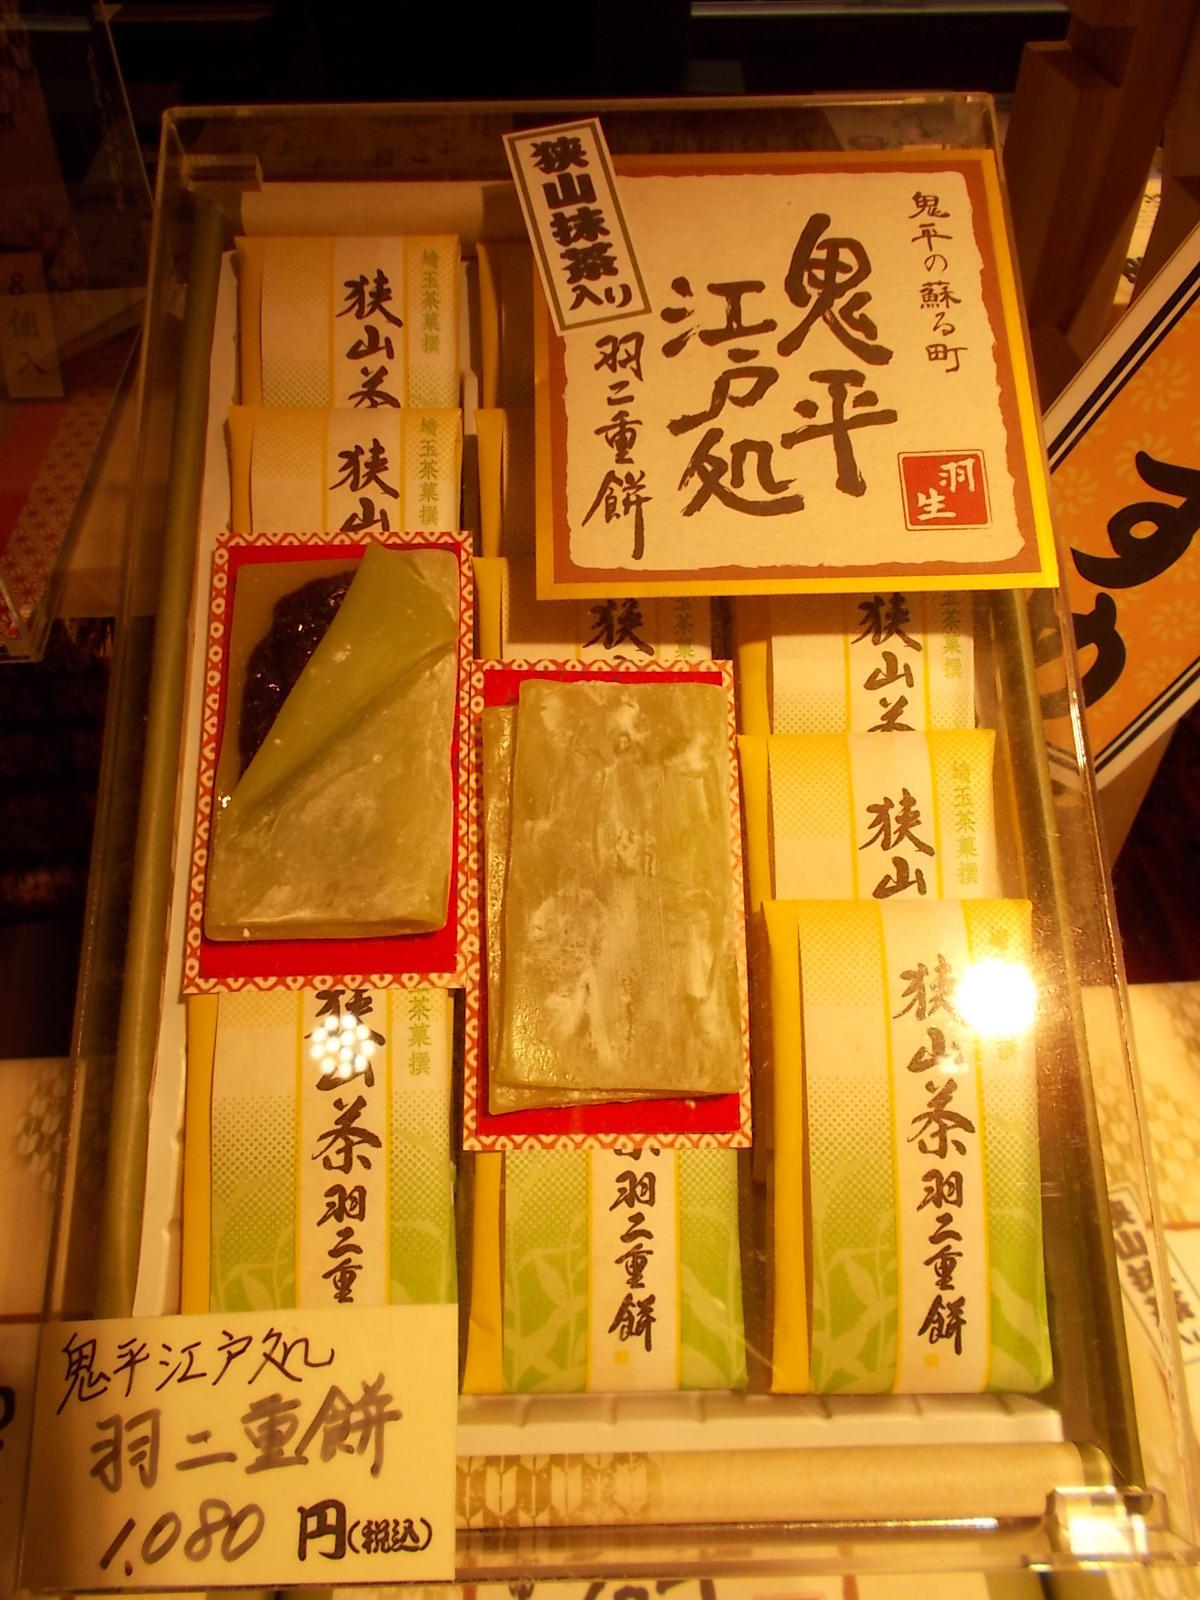 狭山抹茶入り
鬼平の蘇る町
鬼平
江戸処
羽二重餅
羽生
埼玉茶菓撰
狭山茶
埼玉茶菓撰
狭山
狭山
狭山茶
埼玉茶菓撰
狭山
茶菓撰
狭山茶羽二重
茶羽二重餅
狭山茶羽二重餅
鬼平江戸処
羽二重餅
1,080円(税込)
8個入